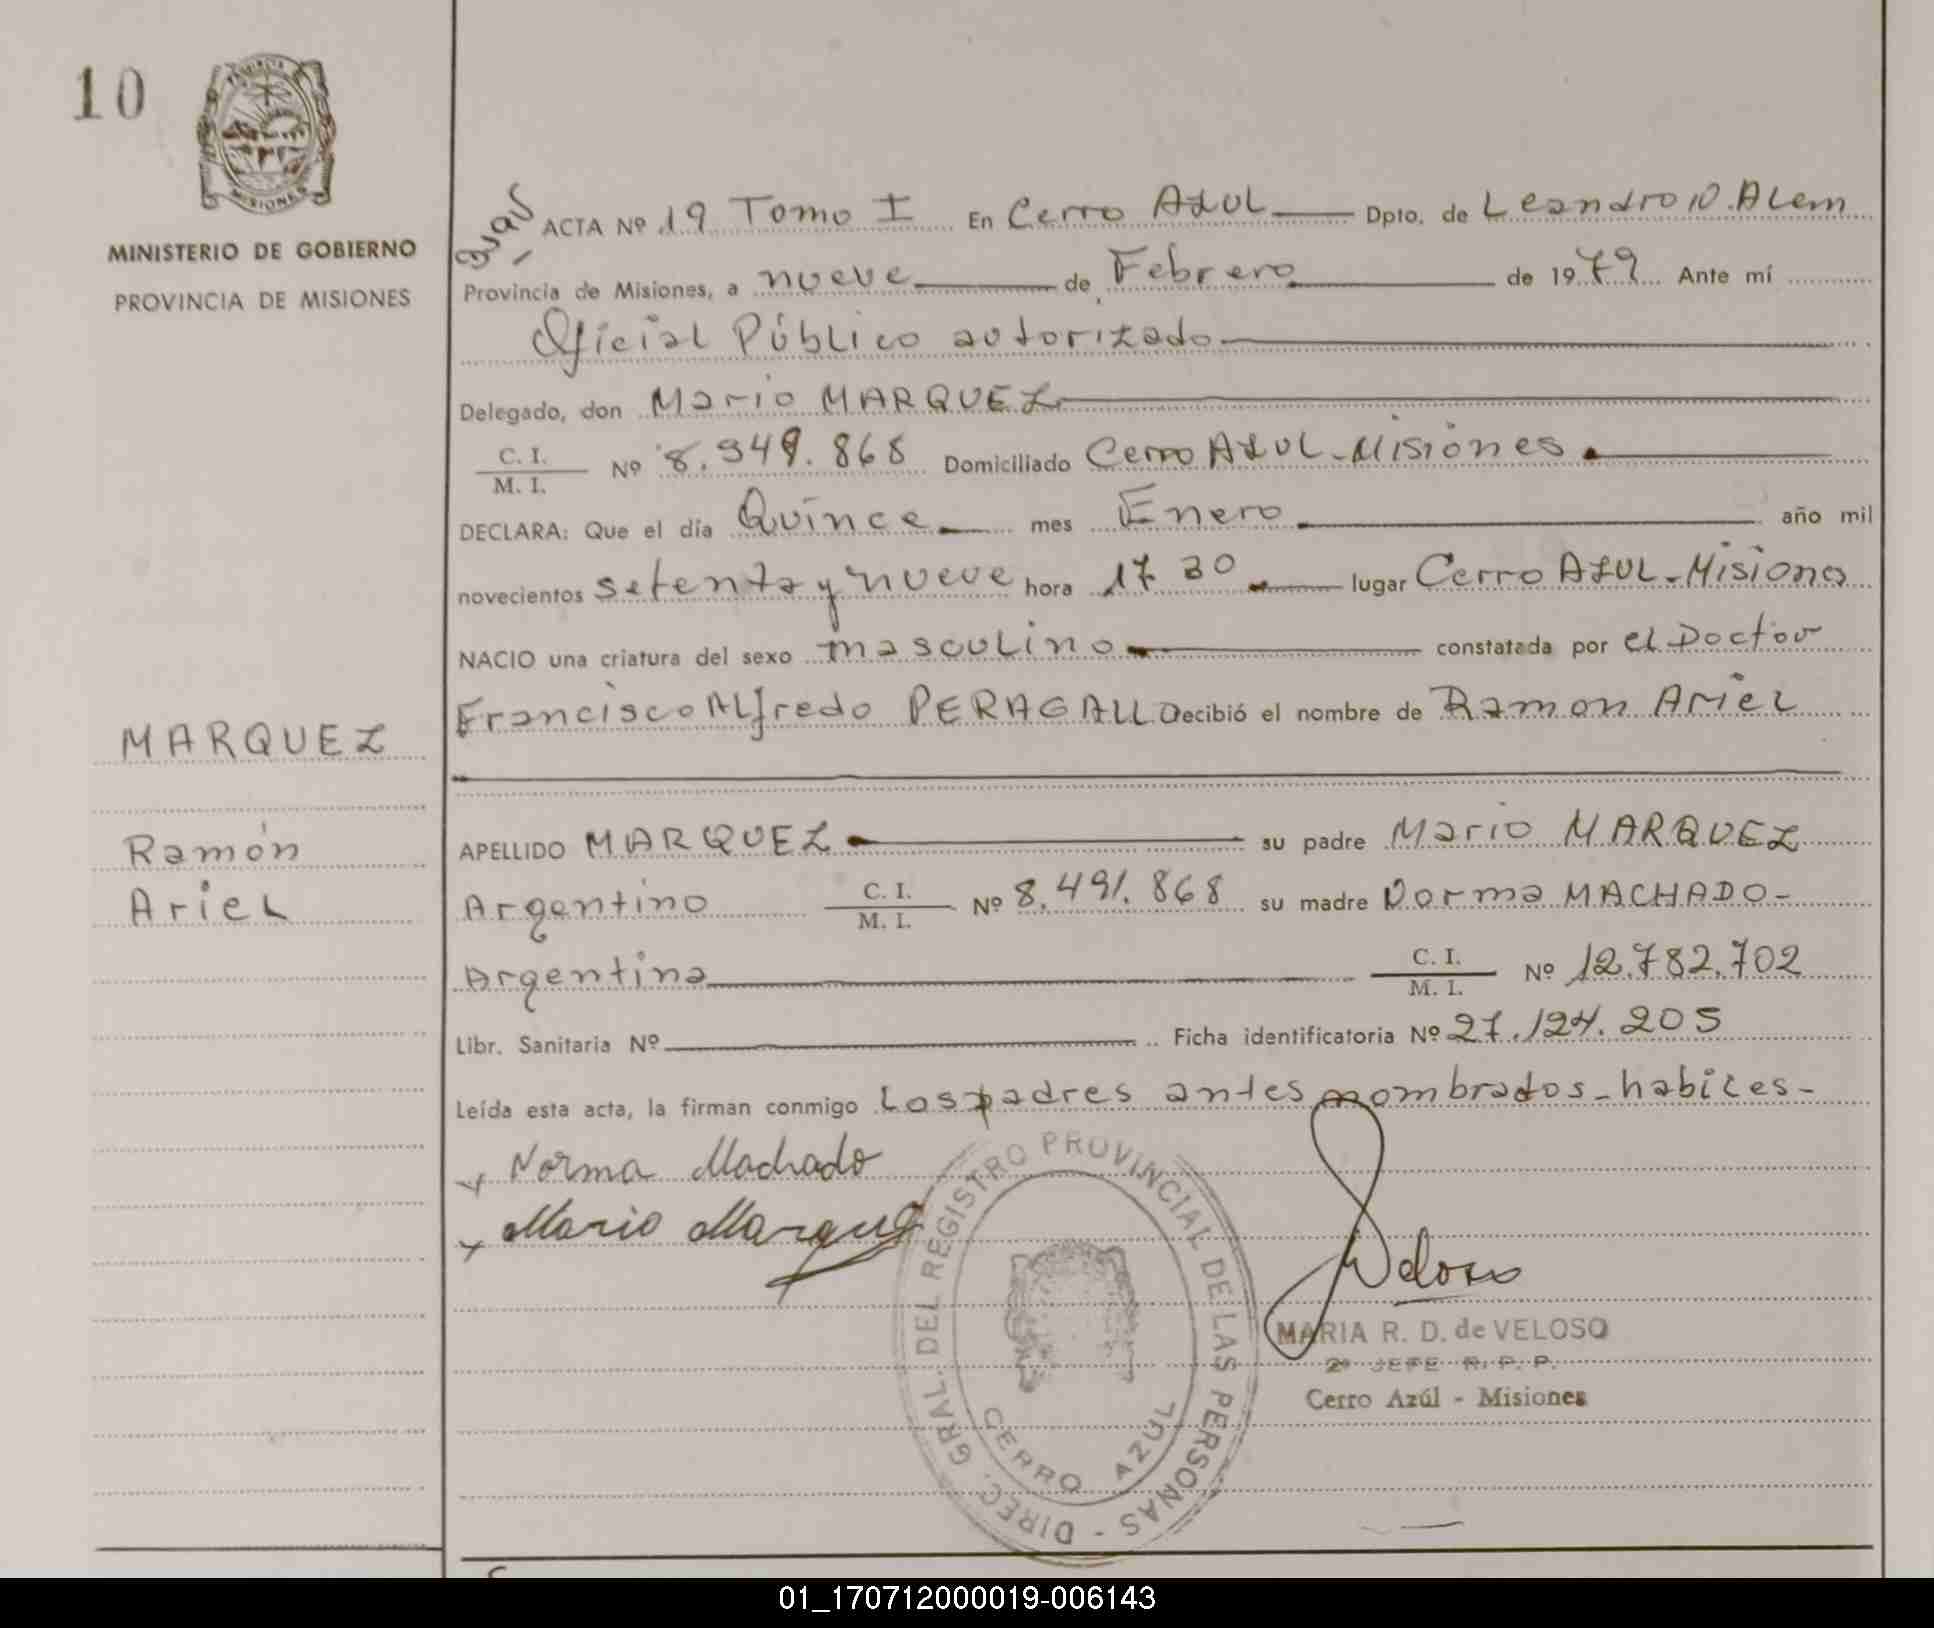 10
PROVINCIA
MISIONES
MINISTERIO DE GOBIERNO
PROVINCIA DE MISIONES
MARQUEZ
Ramón
Ariel
ACTA Nº 19 Tomo I En Cerro Azul Dpto. de Leandro N. Alem
Provincia de Misiones, a nueve de Febrero de 1979 Ante mí
Oficial Público autorizado
Delegado, don Mario MARQUEZ
C. I.
M. I.
Nº 8.949.868 Domiciliado Cerro AZUL - Misiones
DECLARA: Que el día Quince mes Enero año mil
novecientos setenta y nueve hora 17 30 lugar Cerro AZUL - Misiones
NACIO una criatura del sexo masculino constatada por el Doctor
Francisco Alfredo PERAGALLO ecibió el nombre de Ramon Ariel
APELLIDO MARQUEZ su padre Mario MARQUEZ
Argentino C. I. M. I. Nº 8.491.868 su madre Norma MACHADO-
Argentina C. I. M. I. Nº 12.782.702
Libr. Sanitaria Nº Ficha identificatoria Nº 27.124.205
Leída esta acta, la firman conmigo Los padres antes nombrados - habiles -
Norma Machado
Mario Marquez
Veloso
MARIA R. D. de VELOSO
2º JEFE R. P. P.
Cerro Azúl - Misiones
DIREC. GRAL. DEL REGISTRO PROVINCIAL DE LAS PERSONAS -
CERRO AZUL
01_170712000019-006143